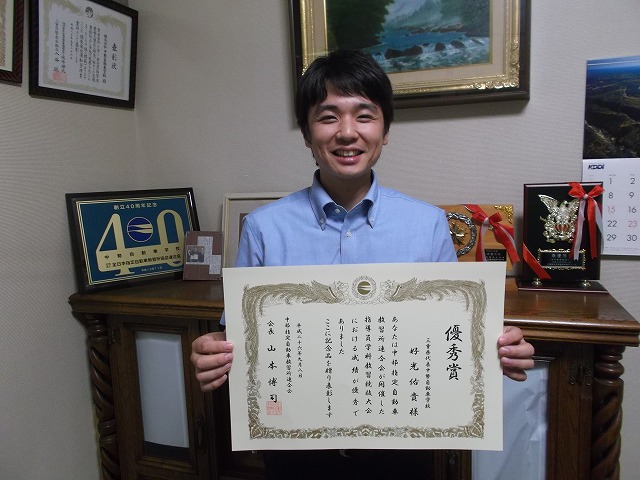 優秀賞
三重県代表中勢自動車学校
好光佑貴様
あなたは中部指定自動車
教習所連合会が開催した
指導員学科教習競技大会
における成績が優秀で
ありました
ここに記念品を贈り表彰します
平成二十六年九月八日
中部指定自動車教習所連合会
会長 山本博司
表彰状
創立40周年記念
40
中勢自動車学校
全日本指定自動車教習所協会連合会
KDDI
1 2
8 9
15 16
22 23
29 30